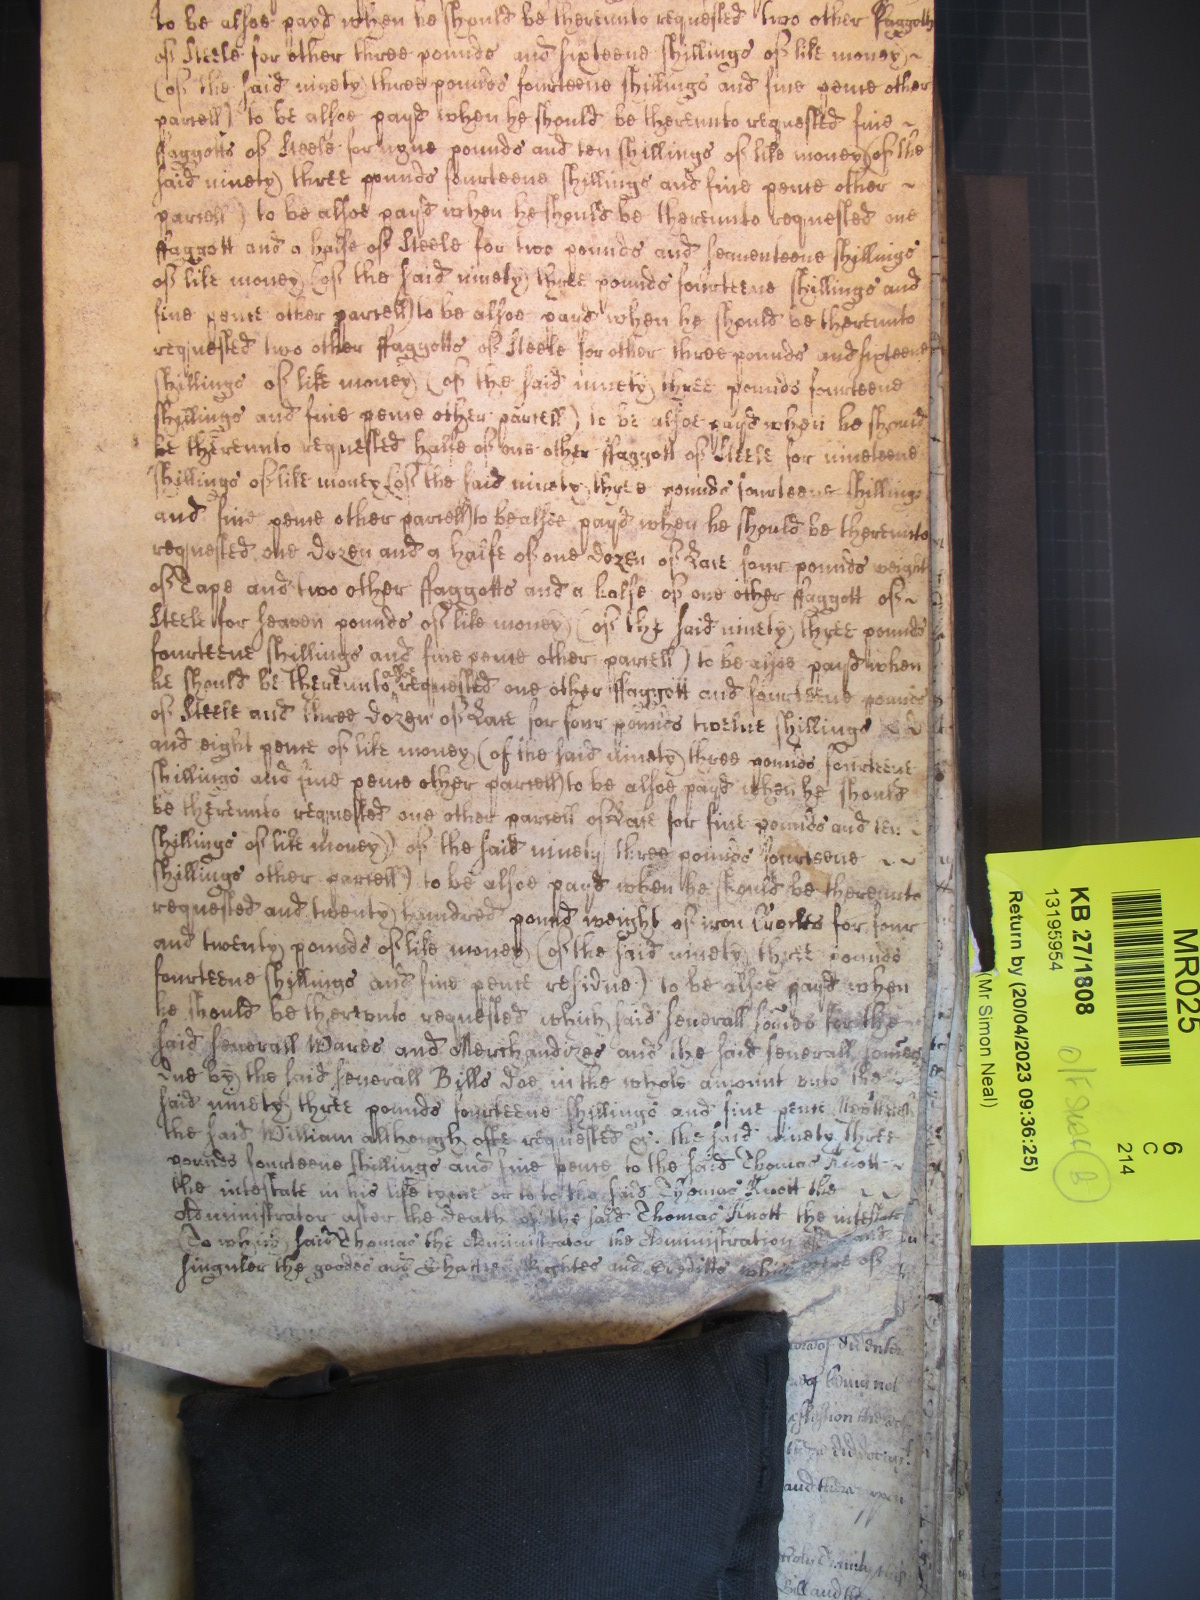 to be alsoe payd when he should be thereunto requested two other ffaggotts
of Steele for other three pounds and sixteene shillings of like money
(of the said ninety three pounds fourteene shillings and five pence other
parcell) to be alsoe payd when he should be thereunto requested five
ffaggotts of Steele for nyne pounds and ten shillings of like money (of the
said ninety three pounds fourteene shillings and five pence other
parcell) to be alsoe payd when he should be thereunto requested one
ffaggott and a halfe of Steele for two pounds and seaventeene shillings
of like money (of the said ninety three pounds fourteene shillings and
five pence other parcell) to be alsoe payd when he should be thereunto
requested two other ffaggotts of Steele for other three pounds and sixteene
shillings of like money (of the said ninety three pounds fourteene
shillings and five pence other parcell) to be alsoe payd when he should
be thereunto requested halfe of one other ffaggott of Steele for nineteene
shillings of like money (of the said ninety three pounds fourteene shillings
and five pence other parcell) to be alsoe payd when he should be thereunto
requested one dozen and a halfe of one dozen of four pounds weight
of Tape and two other ffaggotts and a halfe of one other ffaggott of
Steele for seaven pounds of like money (of the said ninety three pounds
fourteene shillings and five pence other parcell) to be alsoe payd when
he should be thereunto alsoe requested one other ffaggott and fourteene pounds
of Steele and three dozen of for four pounds twelve shillings
and eight pence of like money (of the said ninety three pounds fourteene
shillings and five pence other parcell) to be alsoe payd when he should
be thereunto requested one other parcell of for five pounds and ten
shillings of like money) of the said ninety three pounds fourteene
shillings other parcell) to be alsoe payd when he should be thereunto
requested and twenty hundred pound weight of iron for four
and twenty pounds of like money (of the said ninety three pounds
fourteene shillings and five pence residue) to be alsoe payd when
he should be thereunto requested which said severall for the
said severall Wares and Merchandizes and the said severall
due by the said severall Bills doe in the whole amount unto the
said ninety three pounds fourteene shillings and five pence
the said William although ofte requested &c. the said ninety three
pounds fourteene shillings and five pence to the said Thomas Knott
the intestate in his life tyme or to the said Thomas Knott the
Administrator after the death of the said Thomas Knott the intestate
(To which said Thomas the Administrator the Administration and
singuler the goodes and Rightes and Creditts which were of
and there
Bill and
MR025
6
C
214
KB 27/1808
13195954
Return by (20/04/2023 09:36:25)
(Mr Simon Neal)